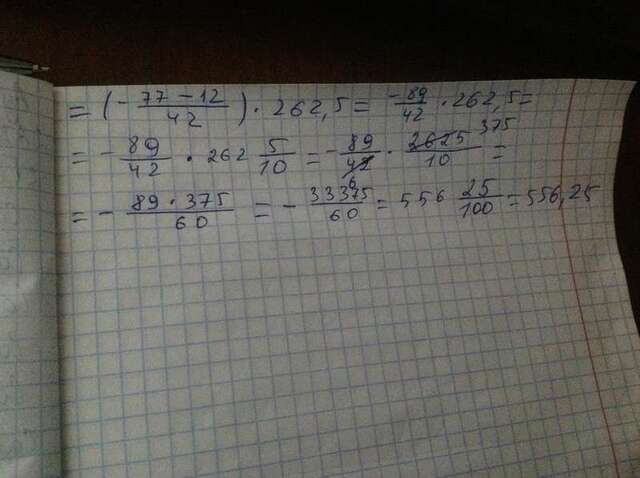 = (- 77 - 12 / 42) · 262,5 = -89/42 · 262,5 =
= - 89/42 · 262 5/10 = - 89/42 6 · 2625/10 375 =
= - 89 · 375 / 60 = - 33375/60 = 556 25/100 = 556,25